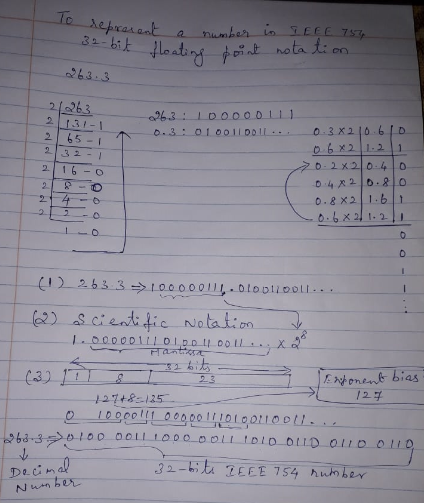 To represent a number in IEEE 754
32-bit floating point notation
263.3
2 | 263
2 | 131 - 1
2 | 65 - 1
2 | 32 - 1
2 | 16 - 0
2 | 8 - 0
2 | 4 - 0
2 | 2 - 0
1 - 0
263 : 100000111
0.3 : 0100110011...
0.3 x 2 | 0.6 | 0
0.6 x 2 | 1.2 | 1
0.2 x 2 | 0.4 | 0
0.4 x 2 | 0.8 | 0
0.8 x 2 | 1.6 | 1
0.6 x 2 | 1.2 | 1
0
0
1
1
(1) 263.3 ⇒ 100000111.0100110011...
(2) Scientific Notation
1.000001110100110011... x 2^8
Mantissa
32 bits
(3) | 1 | 8 | 23 |
Exponent bias
127
127+8=135
0 10000111 000001110100110011...
263.3 ⇒ 0100 0011 1000 0011 1010 0110 0110 0110
Decimal
Number
32-bits IEEE 754 number